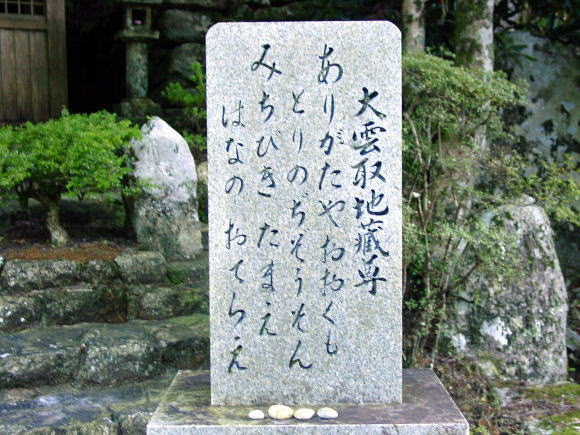 大雲取地蔵尊
ありがたや おおくも
とりのぢぞうそん
みちびき たまえ
はなの おてらえ